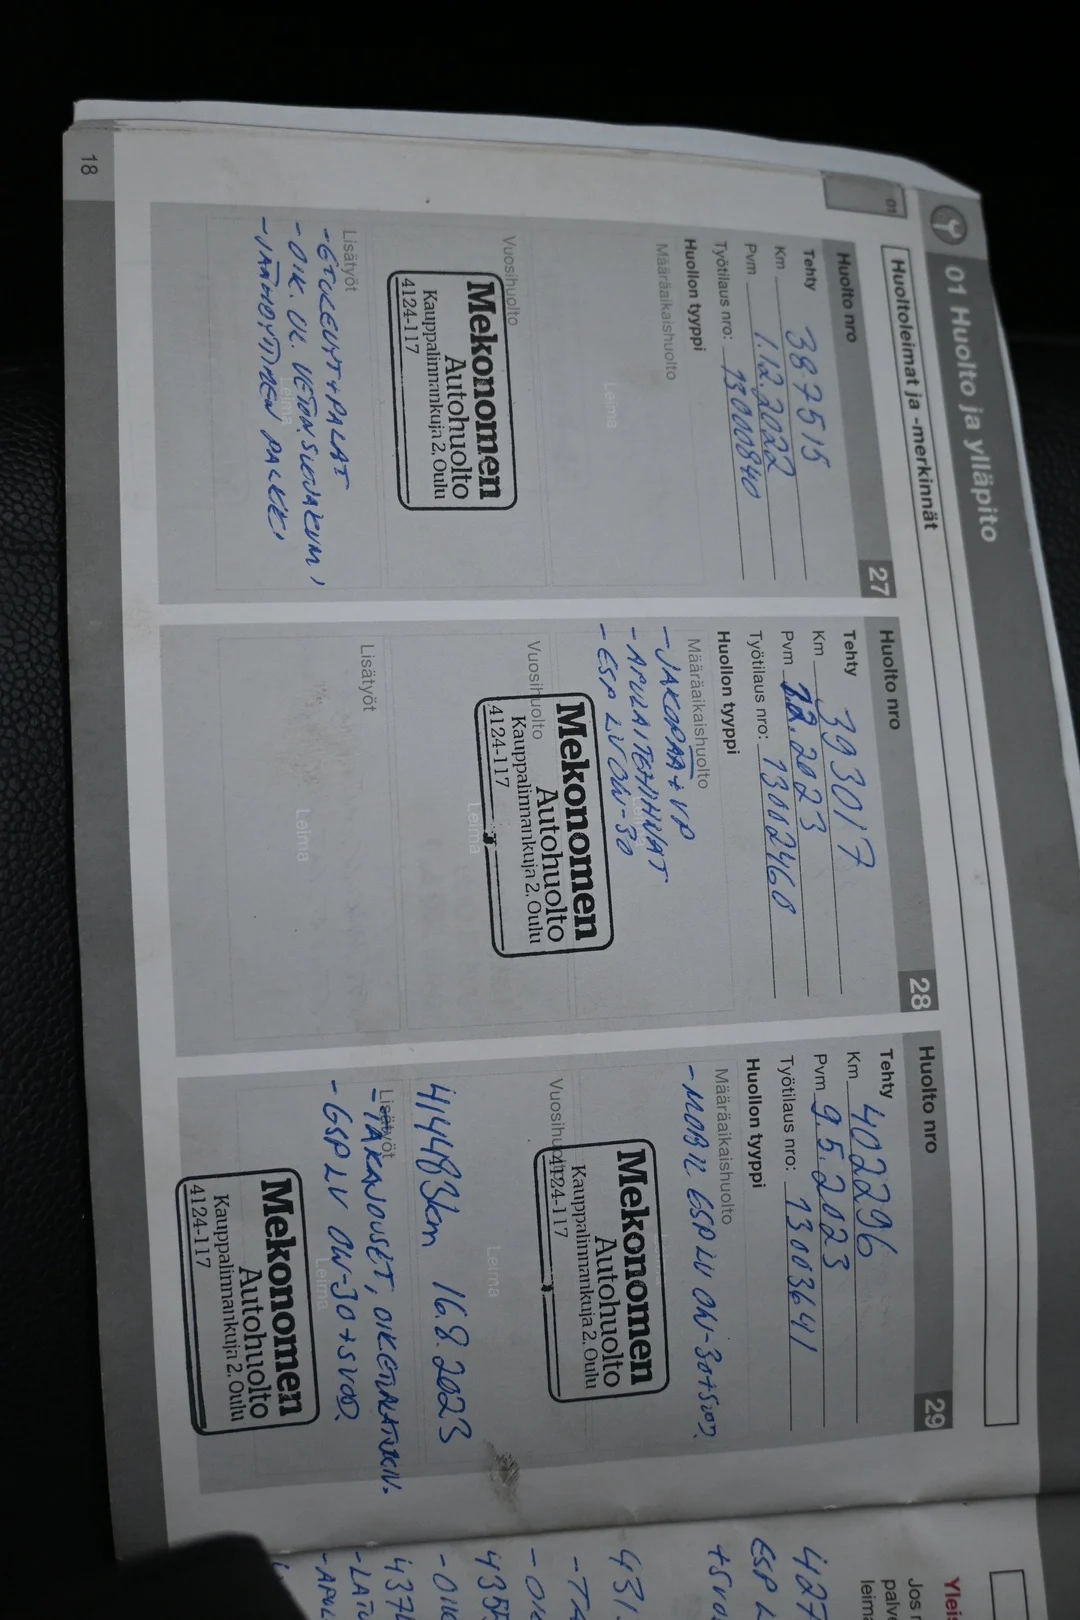 01 Huolto ja ylläpito
01
Huoltoleimat ja -merkinnät
Huolto nro 27
Tehty
Km 387515
Pvm 1.12.2022
Työtilaus nro: 13000840
Huollon tyyppi
Määräaikaishuolto
Leima
Vuosihuolto
Mekonomen
Autohuolto
Kauppalinnankuja 2, Oulu
4124-117
Lisätyöt
-ETULEVYT+PALAT
-OIK. UL. VETONIVELSUOJAKUMI,
Leima
-JÄÄHDYTTIMEN PALKKI
18
Huolto nro 28
Tehty
Km 393017
Pvm 2.2.2023
Työtilaus nro: 13002460
Huollon tyyppi
Määräaikaishuolto
-JAKOPÄÄ+VP
-APULAITEHIHNAT
Leima
-ESP LV 0W-30
Mekonomen
Autohuolto
Kauppalinnankuja 2, Oulu
4124-117
Vuosihuolto
Leima
Lisätyöt
Leima
Huolto nro 29
Tehty
Km 402296
Pvm 9.5.2023
Työtilaus nro: 13003641
Huollon tyyppi
Määräaikaishuolto
-MOBIL ESP LV 0W-30+SUOD.
Mekonomen
Autohuolto
Kauppalinnankuja 2, Oulu
4124-117
Vuosihuolto
Leima
414483km 16.8.2023
Lisätyöt
-TAKAJOUSET,
-ESP LV 0W-30+SUOD.
Leima
Mekonomen
Autohuolto
Kauppalinnankuja 2, Oulu
4124-117
Yleis
Jos
palve
leima
427
ESP L
+SUO
431.
-TA
-OIK
435
-OIK
437
-LATU
-APUL